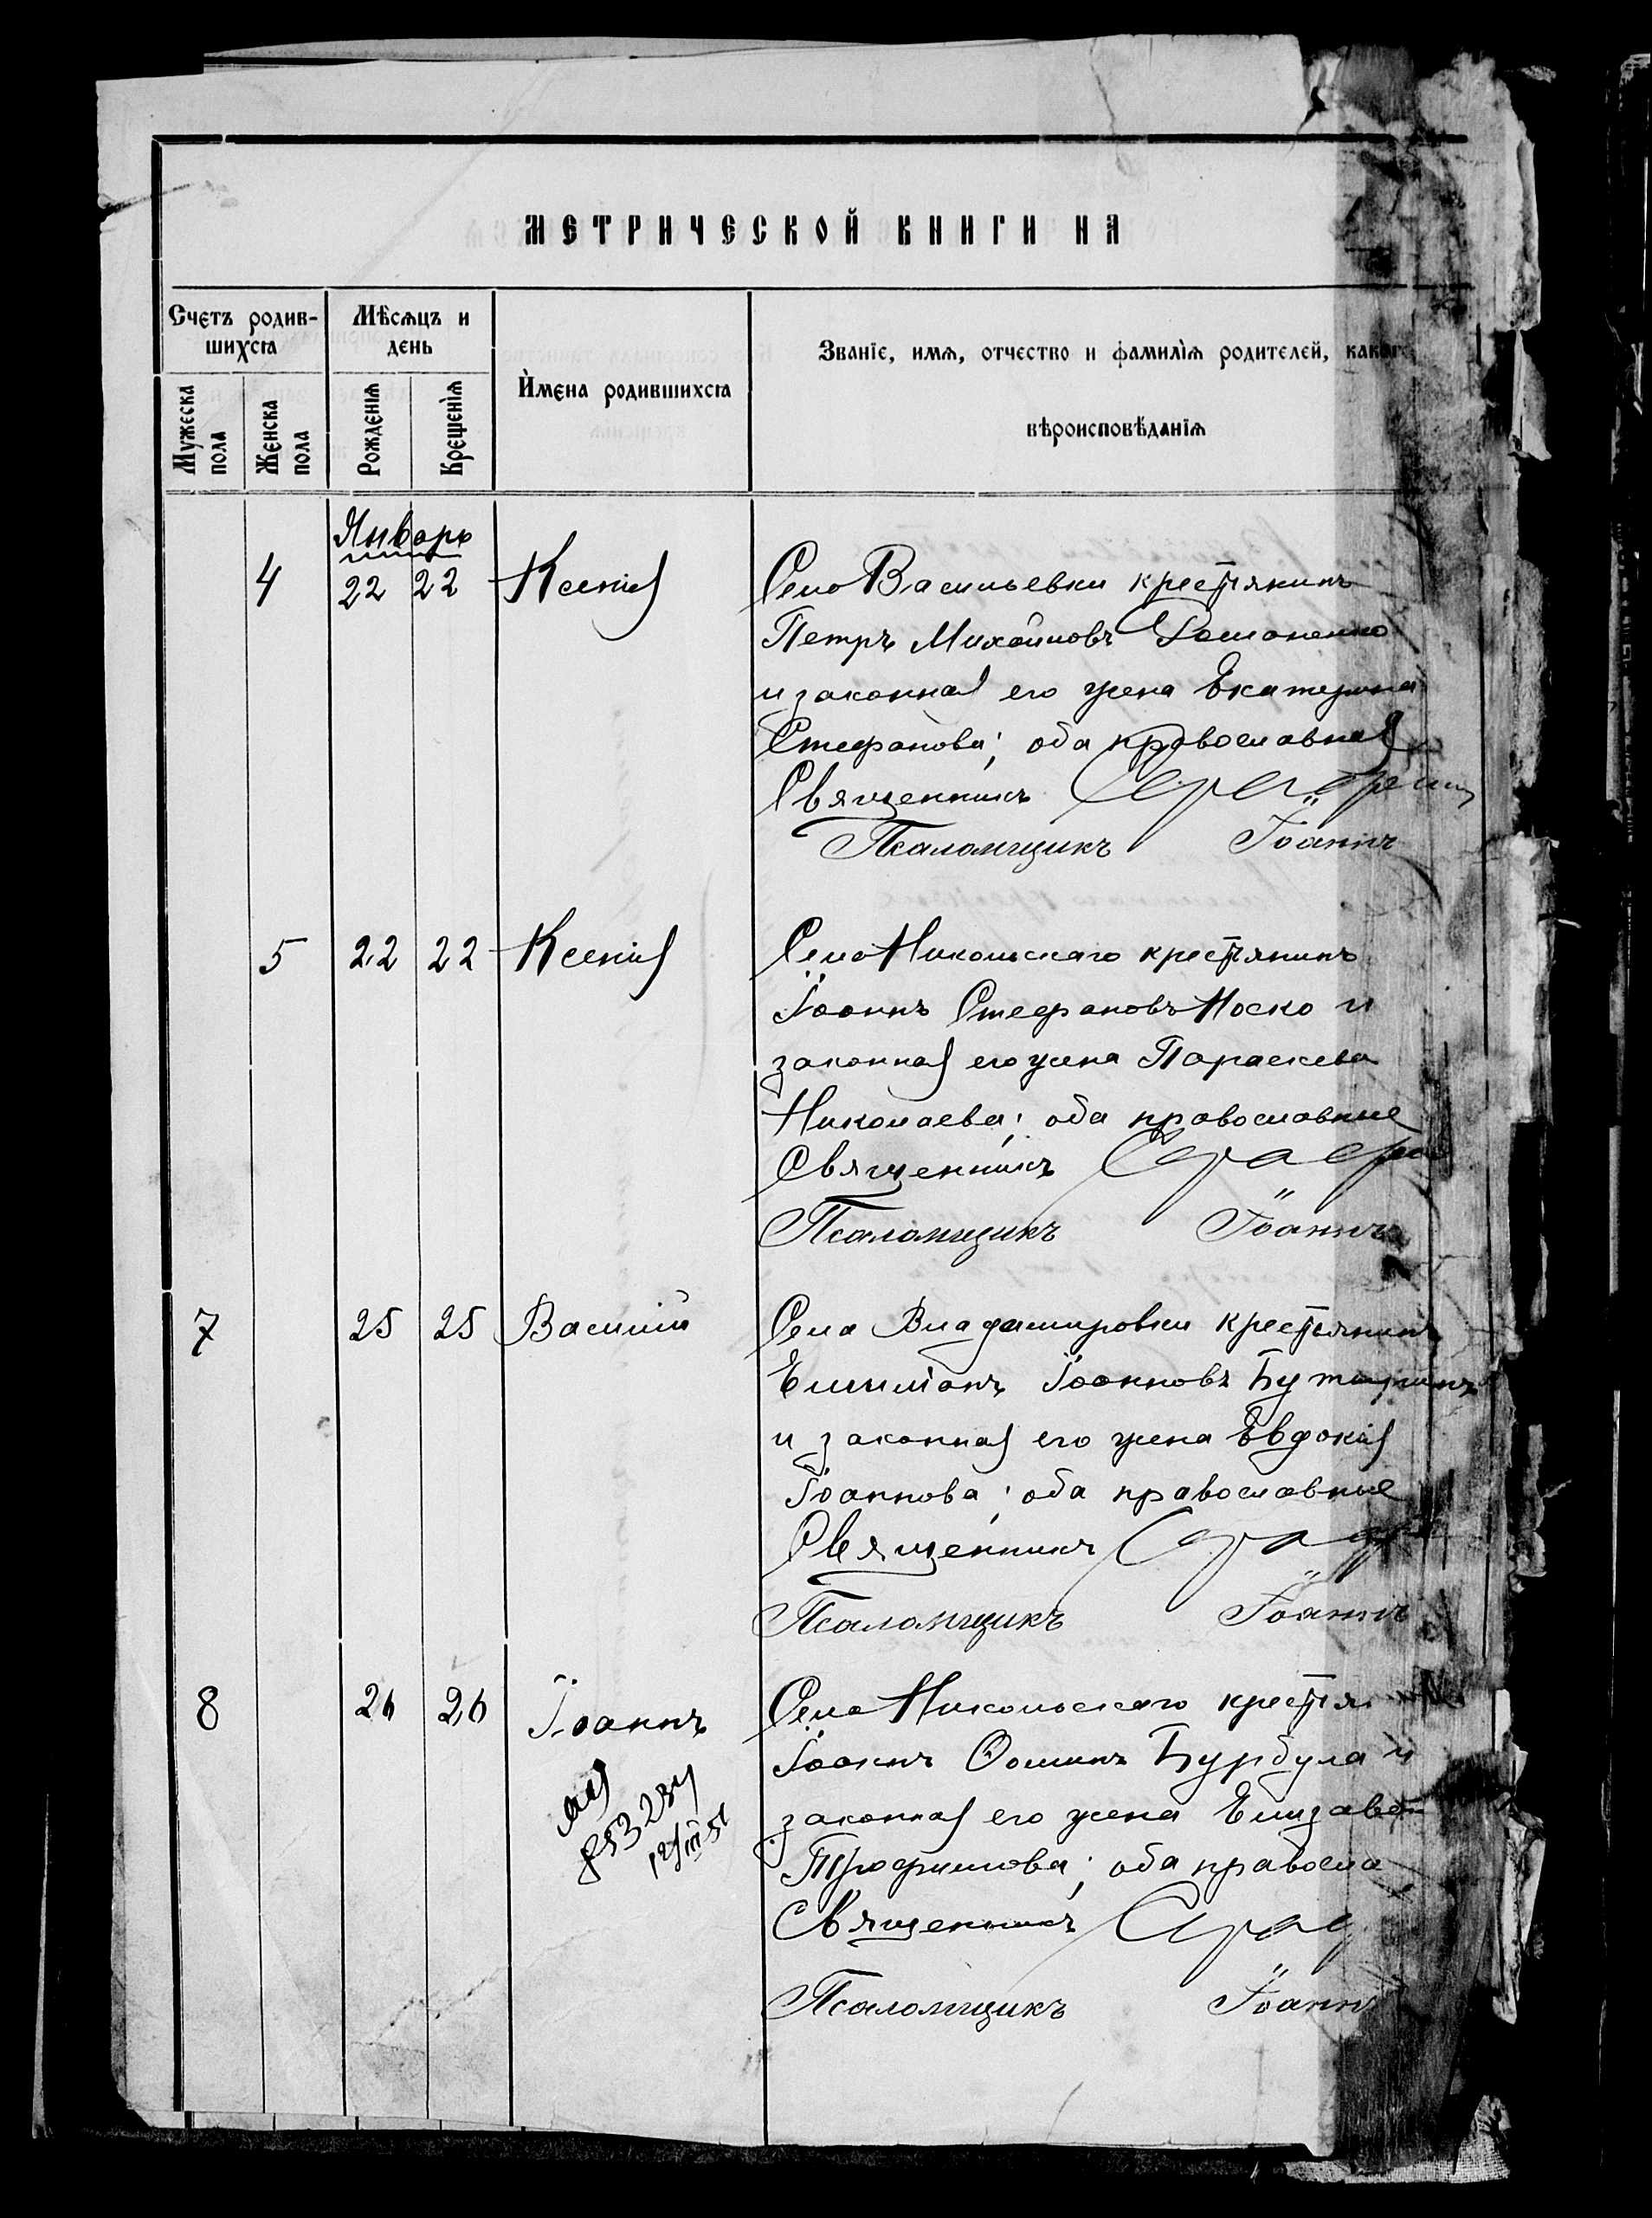 МЕТРИЧЕСКОЙ КНИГИ НА
Счетъ родив-
шихся
Мѣсяцъ и
день
Имена родившихся
Званіе, имя, отчество и фамилія родителей, каког
вѣроисповѣданія
Мужеска
пола
Женска
пола
Рожденія
Крещенія
Январь
4 22 22 Ксенія Села Васильевки крестьянинъ
Петръ Михайловъ Романенко
и законная его жена Екатерина
Стефанова; оба православная
Священникъ
Псаломщикъ Іоаннъ
5 22 22 Ксенія Села Никольскаго крестьянинъ
Іоаннъ Стефановъ Носко и
законная его жена Параскева
Николаева; оба православные
Священникъ
Псаломщикъ Іоаннъ
7 25 25 Василій Села Владимировки крестьянинъ
Іоанновъ
и законная его жена Евдокія
Іоаннова; оба православные
Священникъ
Псаломщикъ Іоаннъ
8 26 26 Іоаннъ Села Никольскаго крестья
Іоаннъ Ѳоминъ Бурбула и
законная его жена Елизавет
Трофимова; оба правосла
Священникъ
Псаломщикъ Іоаннъ
853284